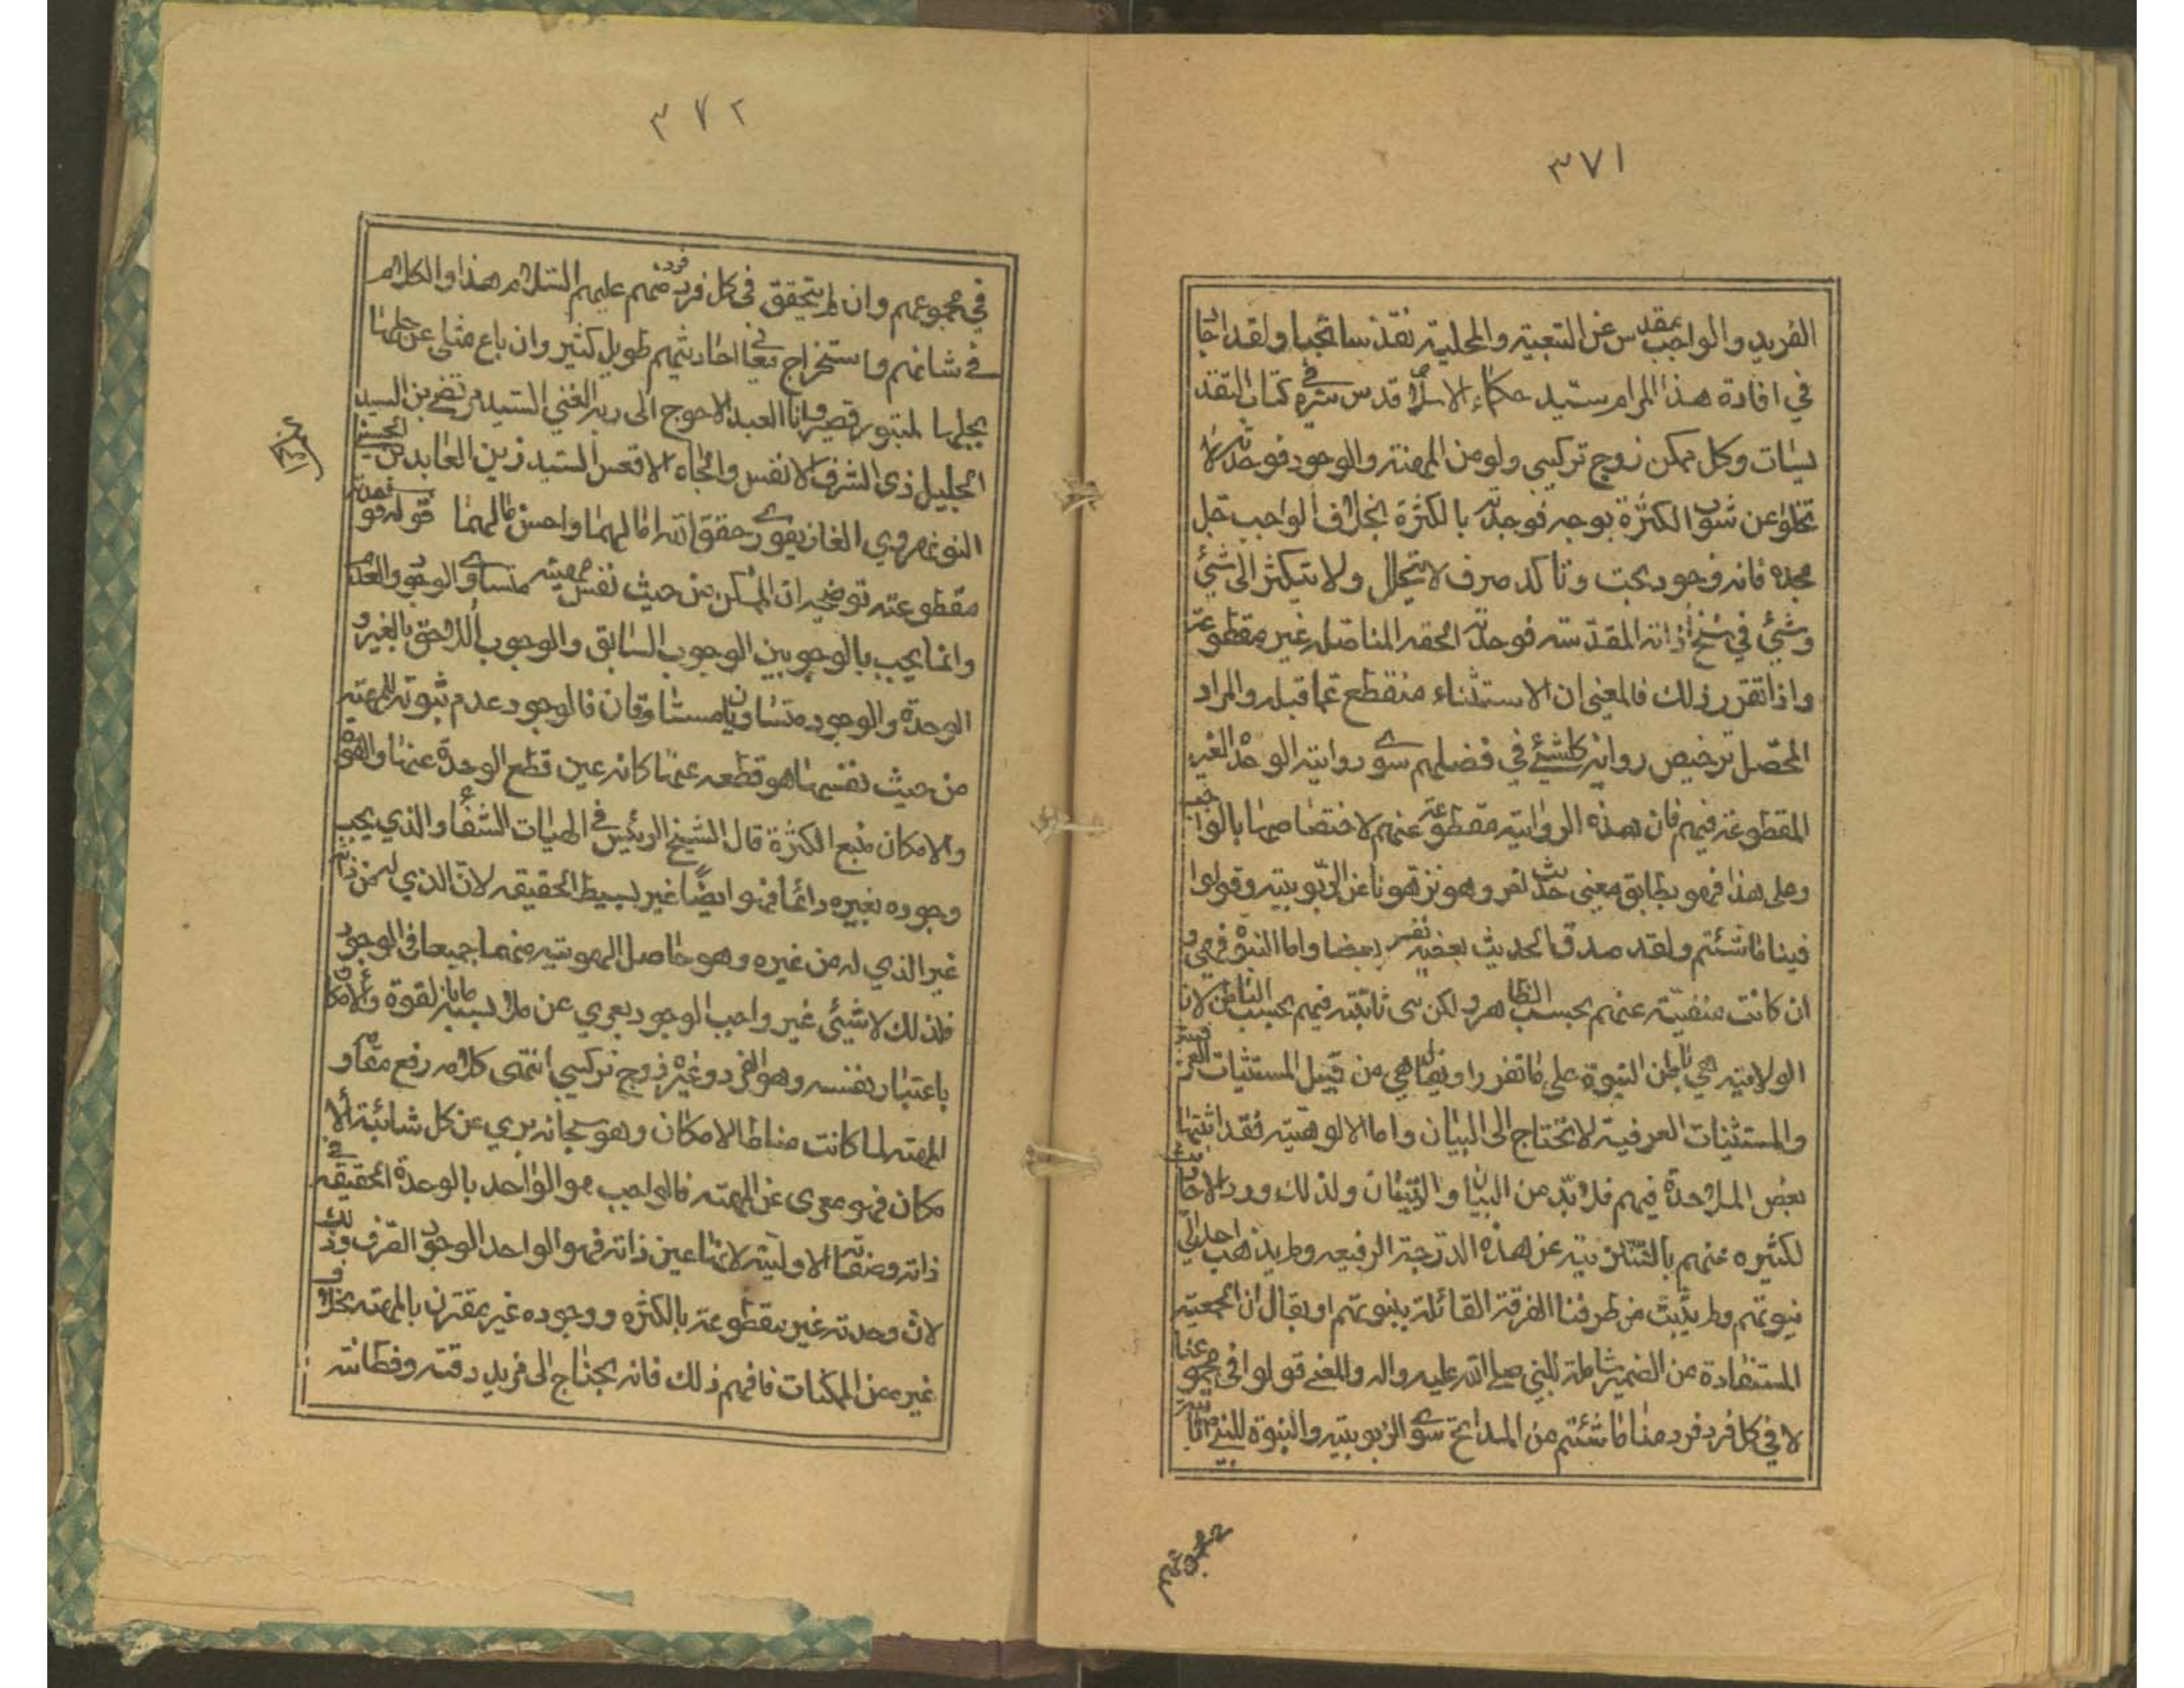 ٣٧١
الفريد والواجب بمقدس عن التبعية والمحلية تقدسا نجبا ولقد اجا
في افادة هذا المرام سيد حكماء الاسلام قدس سره في كتاب التقد
يسات وكل ممكن زوج تركيبي ولو من المهية والوجود فوحدته لا
تخلو عن شوب الكثرة بوجه فوحدته بالكثرة بخلاف الواجب جل
مجده فانه وجود بحت وتاكد صرف لا يتحلل ولا يتكثر الى شيئ
وشيئ في سنخ ذاته المقدسه فوحدته الحقه المتاصله غير مقطوعة
واذا تقرر ذلك فالمعنى ان الاستثناء منقطع عما قبله والمراد
المحصل ترخيص رواية كلشيئ في فضلهم سوى رواية الوحدة الغير
المقطوعة فيهم فان هذه الرواية مقطوعة عنهم لاختصاصها بالواجب
وعلى هذا فهو يطابق معنى حديث اخر وهو نزهونا عن الربوبية وقولوا
فينا ما شئتم ولقد صدق الحديث يفسر بعضه بعضا واما النبوة فهي و
ان كانت منفية عنهم بحسب الظاهر ولكن هي ثابتة فيهم بحسب الباطن لان
الولاية هي باطن النبوة على ما تقرر او نقول هي من قبيل المستثنيات العرفية
والمستثنيات العرفية لا تحتاج الى البيان واما الالوهية فقد اثبتها
بعض الملاحدة فيهم فلا بد من البيان والتبيان ولذلك ورد الاحاديث
لكثيره عنهم بالتنزيه عن هذه الدرجة الرفيعه ولم يذهب احد الى
نبوتهم ولم يثبت من طرفنا الفرقة القائلة بنبوتهم او يقال ان الجمعية
المستفادة من الضمير شاملة للنبي صلى الله عليه واله والمعنى قولوا في مجموعنا
لا في كل فرد فرد منا ما شئتم من المدايح سوى الربوبية والنبوة للنبي
٣٧٢
في مجموعهم وان لم يتحقق في كل فرد فرد منهم عليهم السلام هذا والكلام
في شانهم واستخراج معاني احاديثهم طويل كثير وان باع مثلي عن حملها
بجملها لمبتور قصير وانا العبد الاحوج الى ربه الغني السيد مرتضى بن السيد
الجليل ذي الشرف الانفس والجاه الاقعس السيد زين العابدين الحسيني
النونهروي الغازيفوري حقق الله امالهما واحسن مالهما قوله فوحدته
مقطوعته توضيحه ان الممكن من حيث نفس مهيته متساوي الوجود والعدم
وانما يجب بالوجوبين الوجوب السابق والوجوب اللاحق بالغير و
الوحدة والوجود متساويان متساوقان فالوجود عدم ثبوته للمهية
من حيث نفسها هو قطعه عنها كانه عين قطع الوحدة عنها والقوة
والامكان منبع الكثرة قال الشيخ الرئيس في الهيات الشفاء والذي يجب
وجوده بغيره دائما فهو ايضا غير بسيط الحقيقه لان الذي له من ذاته
غير الذي له من غيره وهو حاصل الهوية منهما جميعا في الوجود
فلذلك لا شيئ غير واجب الوجود يعري عن ملابسة ما بالقوة والامكان
باعتبار نفسه وهو الفرد وغيره زوج تركيبي انتهى كلامه رفع مقامه و
المهية لما كانت مناط الامكان وهو سبحانه بري عن كل شائبة الا
مكان فهو معرى عن المهية فالواجب هو الواحد بالوحدة الحقيقه في
ذاته وصفاته الاولية لانها عين ذاته فهو الواحد الوجود الصرف وذلك
لان وحدته غير مقطوعة بالكثرة ووجوده غير مقترن بالمهية بخلاف
غيره من الممكنات فافهم ذلك فانه يحتاج الى مزيد دقة وفطانة